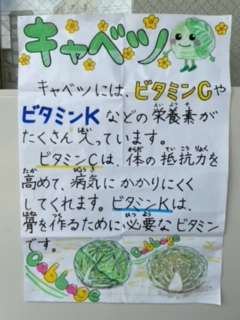 キャベツ
キャベツには、ビタミンCや
ビタミンKなどの栄養素が
たくさん入っています。
ビタミンCは、体の抵抗力を
高めて、病気にかかりにくく
してくれます。ビタミンKは、
骨を作るために必要なビタミン
です。
Cabbage
Cabbage